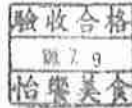 驗收合格
7. 9
怡樂美食